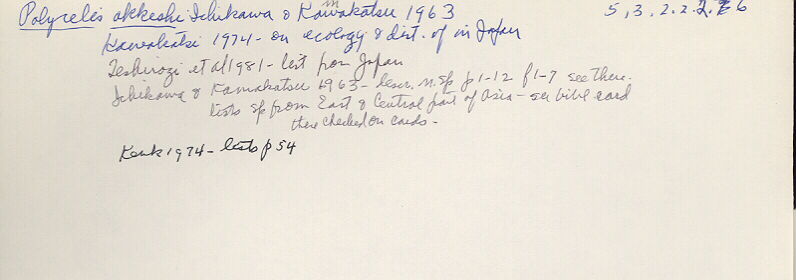 Polycelis akkeshi Ichikawa & Kawakatsu 1963 5,3.2.2.2.6
Kawakatsu 1974 - on ecology & dist. of in Japan
Teshirogi et al 1981 - list from Japan
Ichikawa & Kawakatsu 1963 - descr. n. sp p 1-12 f 1-7 see there.
lists sp from East & Central part of Asia - see bibl card
these checked on cards -
Kenk 1974 - lists p 54